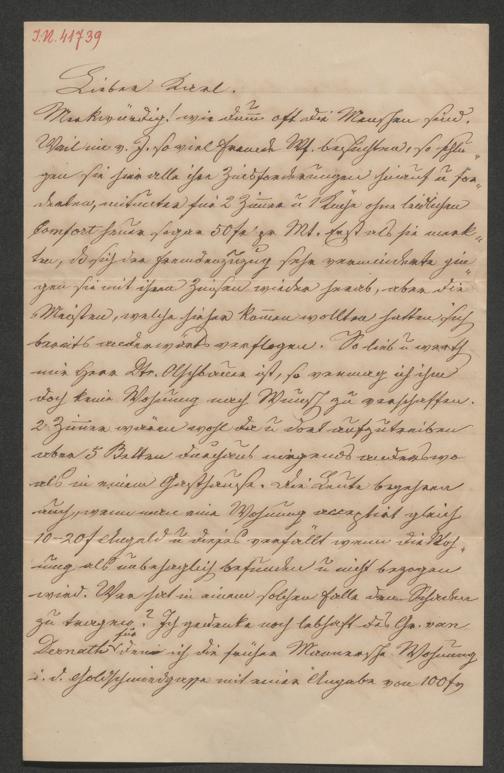 I.N. 41739
Lieber Karl.
Merkwürdig! wie dumm oft die Menschen sind.
Weil im v. J. so viel fremde Wf. besuchten, so schlu-
gen sie hier alle ihre Zinsforderungen hinauf u for-
derten, mitunter für 2 Zimmer u 1 Küche ohne leidlichen
Comfort heuer sogar 50 fr pr Mt. Erst als sie merk-
ten, daß sich der Fremdenzuzug sehr verminderte gin-
gen sie mit ihren Zinsen wieder herab, aber die
Meisten, welche hieher kommen wollten hatten sich
bereits anderwärts verflogen. So lieb u werth
mir Herr Dtr. Olschbauer ist, so vermag ich ihm
doch keine Wohnung nach Wunsch zu verschaffen.
2 Zimmer wären wohl da u dort aufzutreiben
aber 5 Betten durchaus nirgends anderswo
als in einem Gasthause. Die Leute begehren
auch, wenn man eine Wohnung acceptirt gleich
10-20 f Angeld u dieses verfällt wenn die Woh-
nung als unbehaglich befunden u nicht bezogen
wird. Wer hat in einem solchen Falle den Schaden
zu tragen? Ich gedenke noch lebhaft des Gr. van
Dernath für den ich die früher Wohnung
i. d. Goldschmiedgasse mit einer Angabe von 100 f